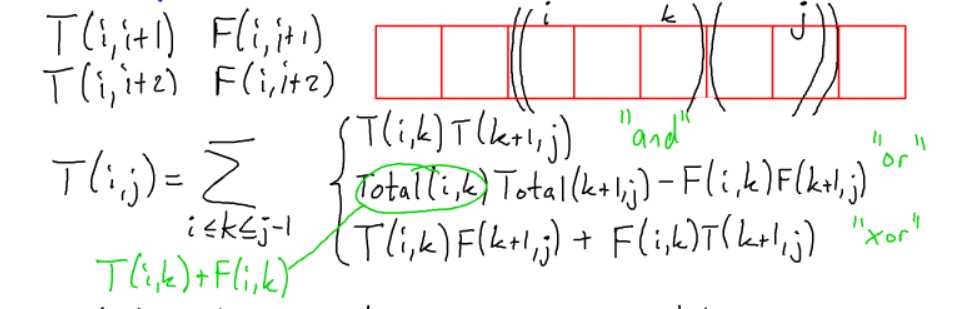 T(i,i+1) F(i,i+1)
T(i,i+2) F(i,i+2)
i k j
T(i,j) = ∑ i≤k≤j-1 {
T(i,k)T(k+1,j) "and"
Total(i,k)Total(k+1,j) - F(i,k)F(k+1,j) "or"
T(i,k)F(k+1,j) + F(i,k)T(k+1,j) "xor"
T(i,k)+F(i,k)